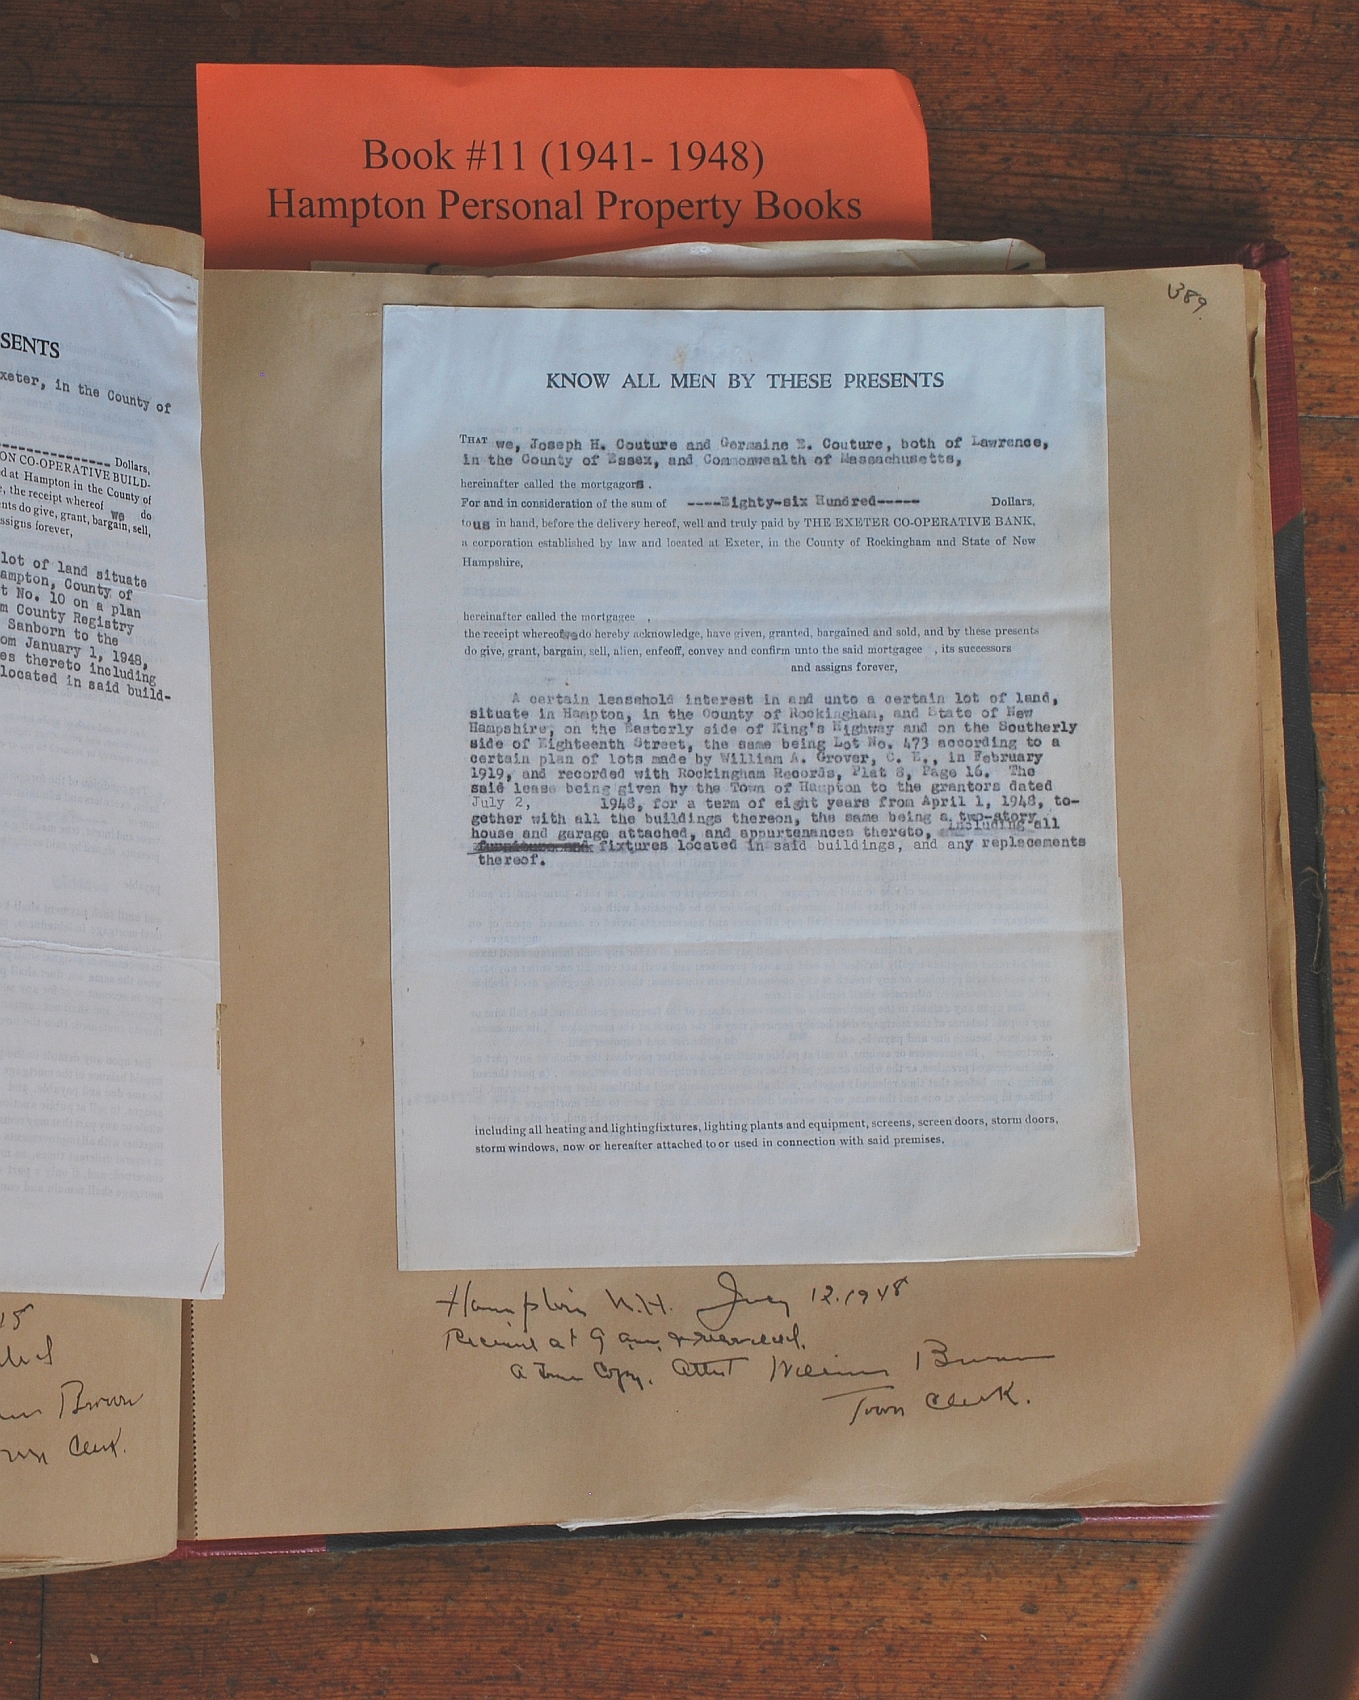 Book #11 (1941- 1948)
Hampton Personal Property Books
389
SENTS
xeter, in the County of
Dollars,
ON CO-OPERATIVE BUILD-
d at Hampton in the County of
, the receipt whereof we do
nts do give, grant, bargain, sell,
ssigns forever,
lot of land situate
ampton, County of
t No. 10 on a plan
m County Registry
Sanborn to the
om January 1, 1948,
es thereto including
located in said build-
Brown
Clerk.
KNOW ALL MEN BY THESE PRESENTS
THAT we, Joseph H. Couture and Germaine E. Couture, both of Lawrence,
in the County of Essex, and Commonwealth of Massachusetts,
hereinafter called the mortgagors.
For and in consideration of the sum of ----Eighty-six Hundred----- Dollars,
to us in hand, before the delivery hereof, well and truly paid by THE EXETER CO-OPERATIVE BANK,
a corporation established by law and located at Exeter, in the County of Rockingham and State of New
Hampshire,
hereinafter called the mortgagee ,
the receipt whereof we do hereby acknowledge, have given, granted, bargained and sold, and by these presents
do give, grant, bargain, sell, alien, enfeoff, convey and confirm unto the said mortgagee , its successors
and assigns forever,
A certain leasehold interest in and unto a certain lot of land,
situate in Hampton, in the County of Rockingham, and State of New
Hampshire, on the Easterly side of King's Highway and on the Southerly
side of Eighteenth Street, the same being Lot No. 473 according to a
certain plan of lots made by William A. Grover, C. E., in February
1919, and recorded with Rockingham Records, Plat 8, Page 16. The
said lease being given by the Town of Hampton to the grantors dated
July 2, 1948, for a term of eight years from April 1, 1948, to-
gether with all the buildings thereon, the same being a two-story
house and garage attached, and appurtenances thereto, including all
furniture and fixtures located in said buildings, and any replacements
thereof.
including all heating and lighting fixtures, lighting plants and equipment, screens, screen doors, storm doors,
storm windows, now or hereafter attached to or used in connection with said premises.
Hampton N.H. July 12.1948
Received at 9 am & recorded.
A True Copy. Attest William Brown
Town Clerk.